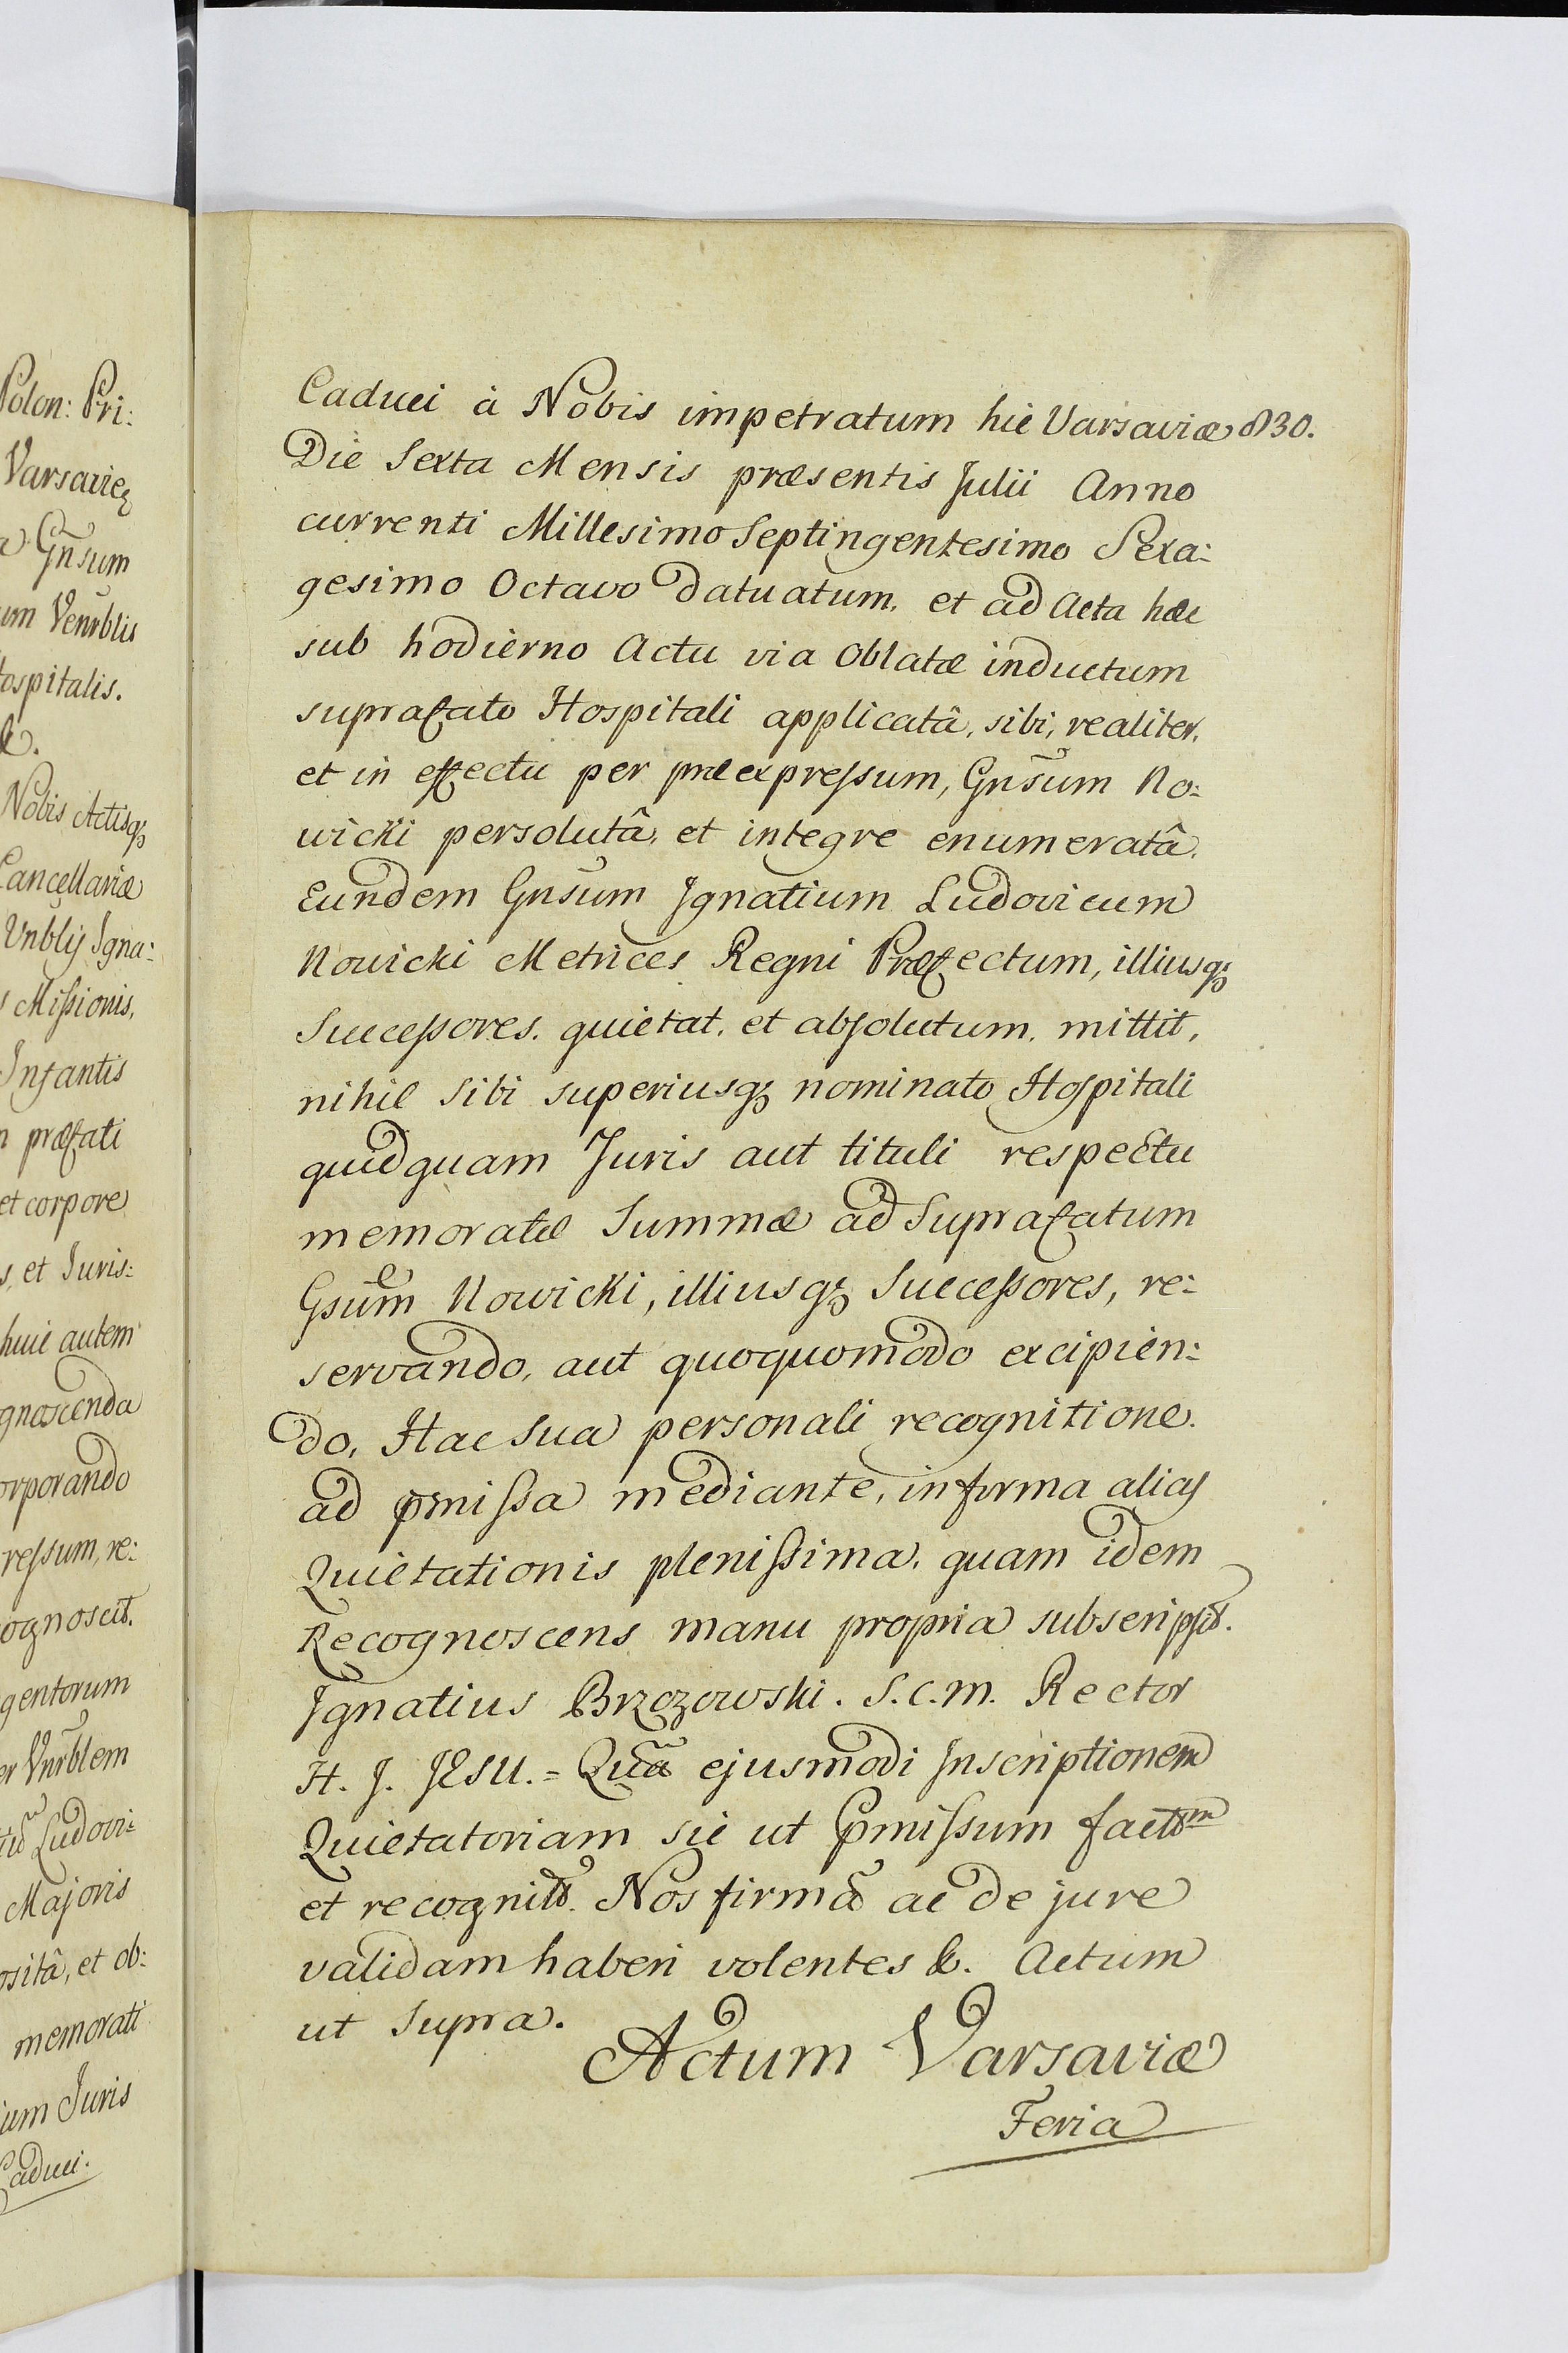 Polon: Pri:
Varsavieq
Gñsum
um Venrblis
Hospitalis.
&.
Nobis Actisqȝ
Cancellariæ
Vnblis Igna:
s Missionis,
Infantis
præfati
et corpore
s, et Juris:
huic autem
gnoscenda
orporando
ressum, re:
ognoscit.
gentorum
er Vnrblem
Ludovi:
Majoris
ositâ, et ob:
memorati
ium Juris
Caduci.
Caduci à Nobis impetratum hic Varsaviæ 830.
Die Sexta Mensis præsentis Julii Anno
currenti Millesimo Septingentesimo Sexa:
gesimo Octavo datuatum, et ad Acta hæc
sub hodierno Actu via Oblatæ inductum
suprafato Hospitali applicatâ, sibi, realiter,
et in effectu per præexpressum, Gñsum No:
wicki persolutâ, et integre enumeratâ.
Eundem Gñsum Ignatium Ludovicum
Nowicki Metrices Regni Præfectum, illiusqȝ
Successores. quietat, et absolutum, mittit,
nihil sibi superiusqȝ nominato Hospitali
quidquam Juris aut tituli respectu
memoratæ Summæ ad Suprafatum
Gsum Nowicki, illiusqȝ Successores, re:
servando, aut quoquomodo excipien:
do, Hac sua personali recognitione.
ad pmissa mediante, in forma alias
Quietationis plenissima, quam idem
Recognoscens manu propria subscripsit.
Ignatius Brzozowski. S.C.M. Rector
H. J. JESU. = Quã ejusmodi Inscriptionem
Quietatoriam sic ut Pmissum factm
et recognit. Nos firmã ac de jure
validam haberi volentes &. Actum
ut Supra.
Actum Varsaviæ
Feria